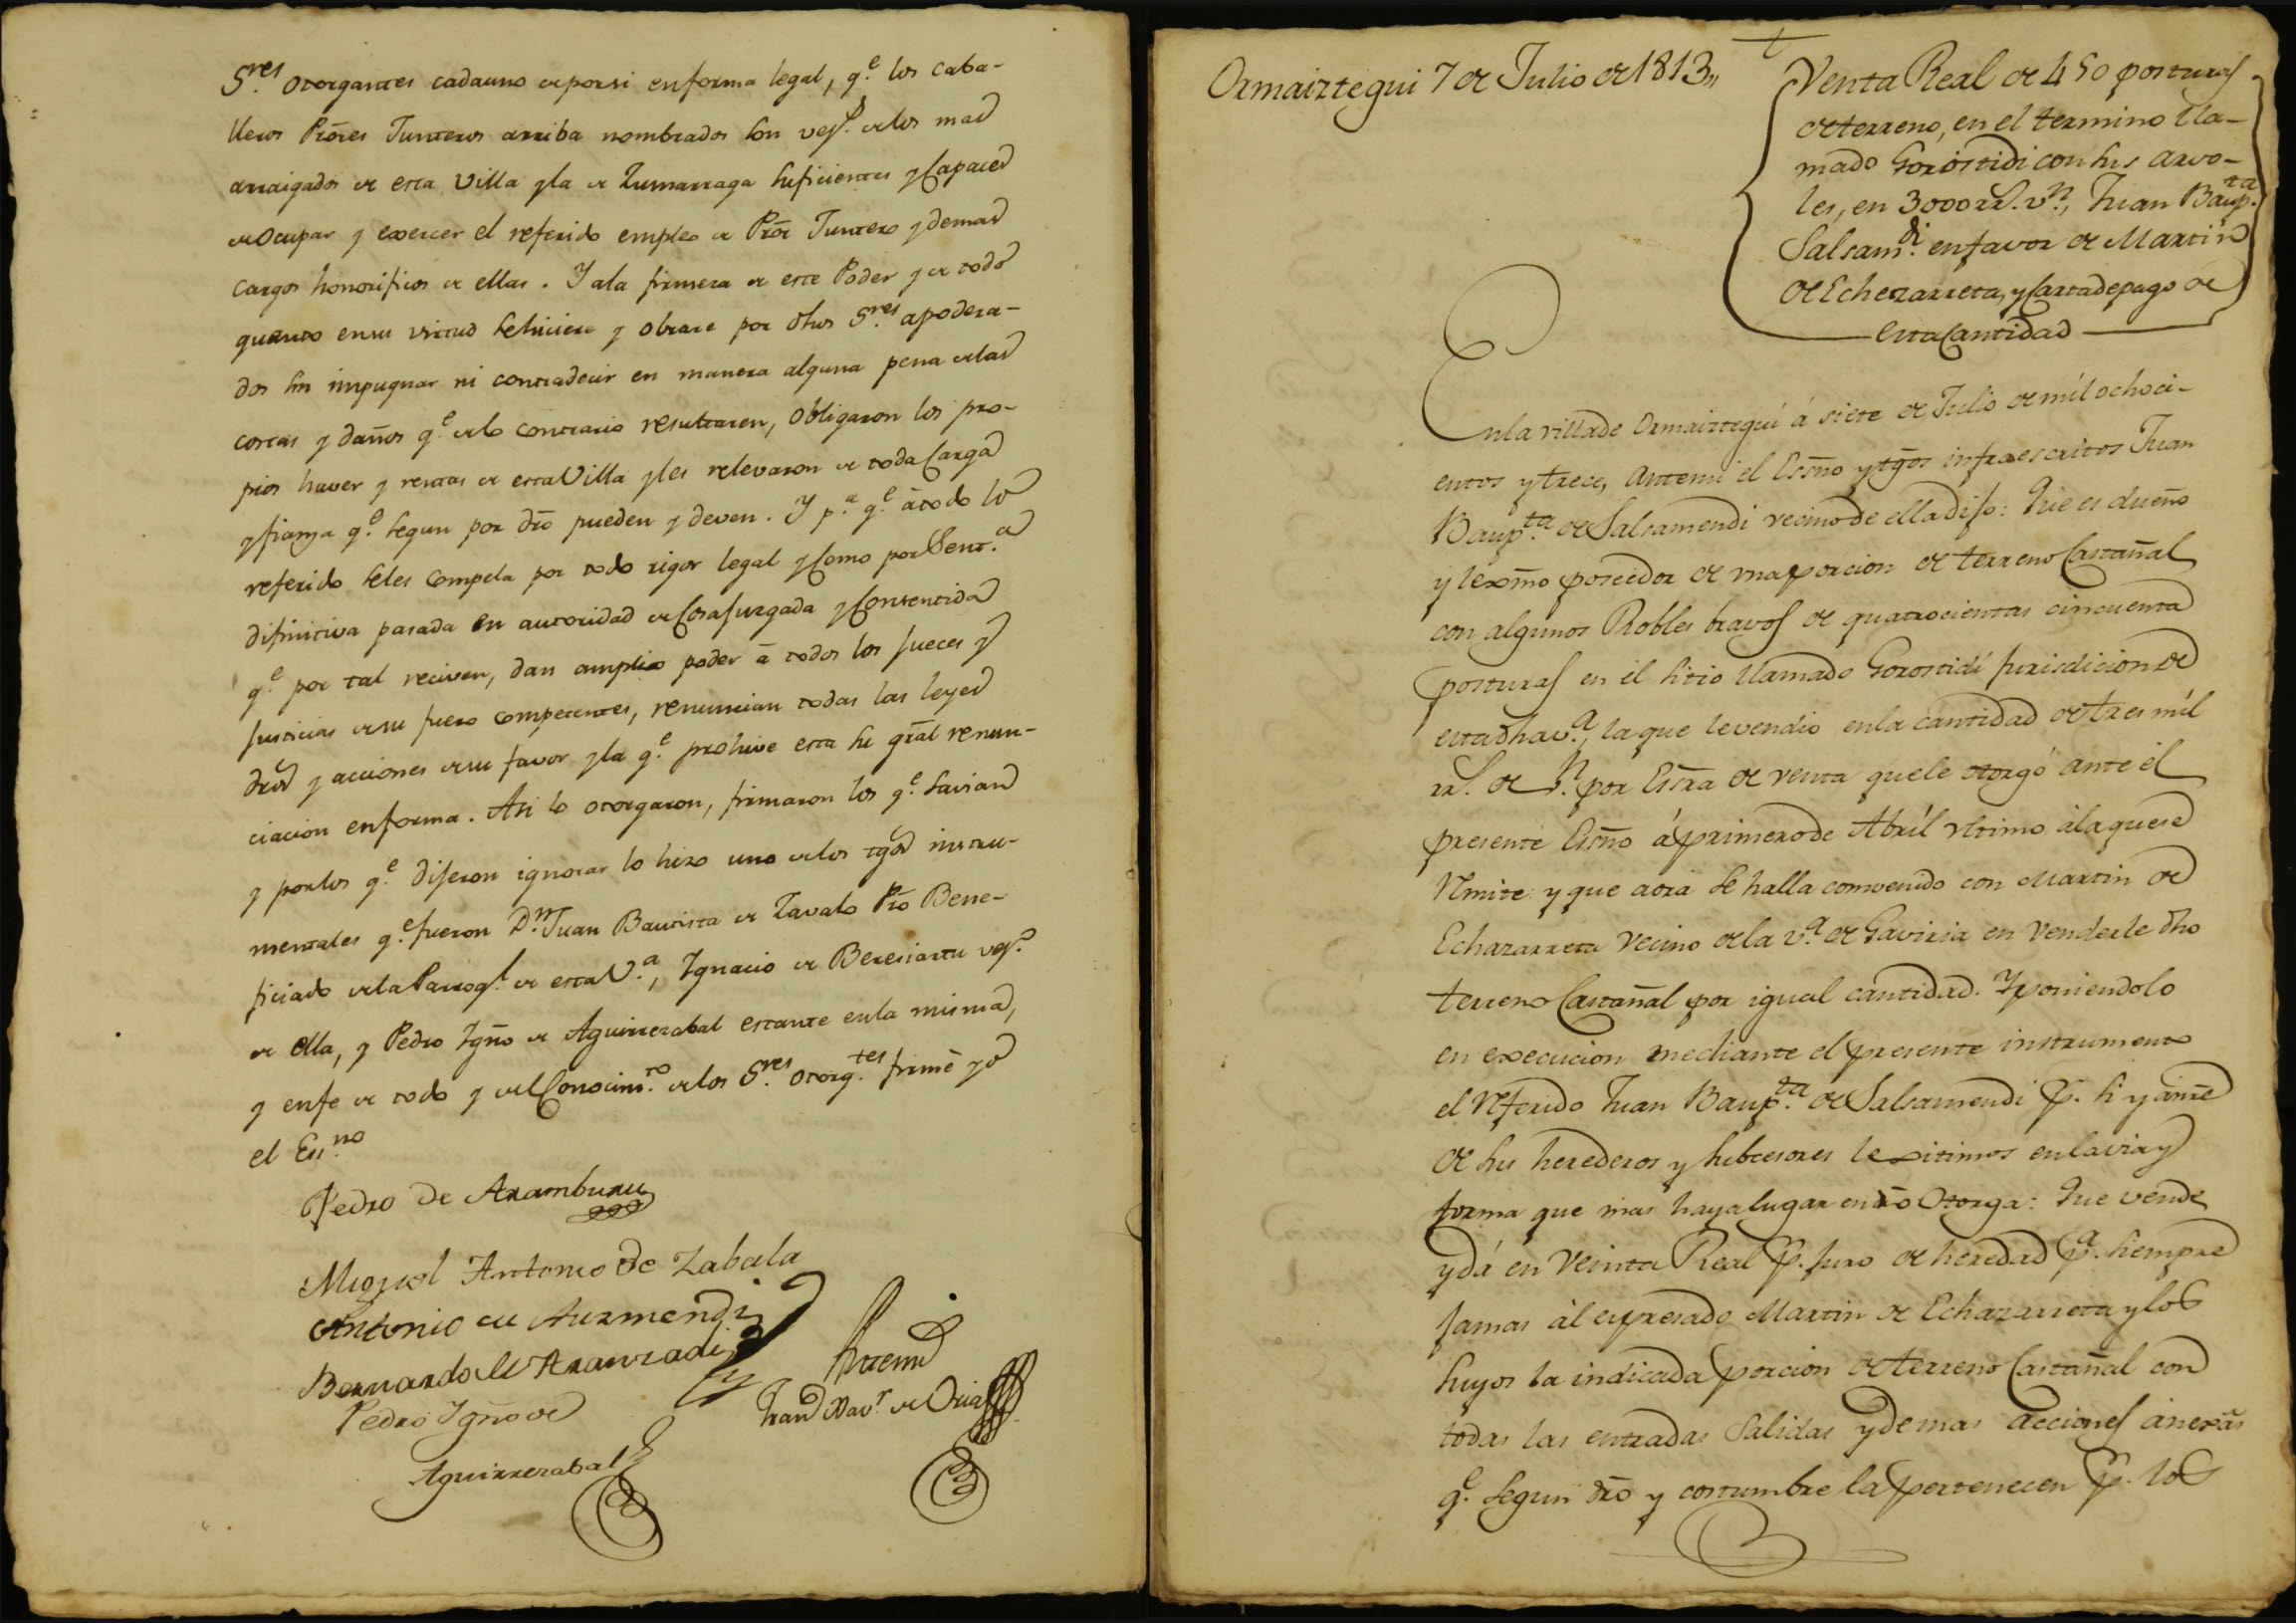 S.res otorgantes cadauno deporsi enforma legal, q.e los caba-
lleros Prōres Junteros arriba nombrados son vez.s delos mas
arraigados de esta Villa yla de Zumarraga suficientes y Capaces
de Ocupar y exercer el referido empleo de Prōr Juntero y demas
cargos honorificos de ellas. Y ala firmeza de este Poder y de todo
quanto ensu virtud sehiciere y obrare por dhos S.res apodera-
dos sin impugnar ni contradecir en manera alguna pena delas
costas y daños q.e delo contrario resultaren, Obligaron los pro-
pios haver y rentas de estaVilla yles relevaron de toda Carga
yfianza q.e segun por dro pueden y deven. Y p.a q.e àtodo lo
referido seles Compela por todo rigor legal yComo por Sent.a
difinitiva pasada en autoridad deCosaJuzgada yConsentida
q.e por tal reciven, dan amplio poder à todos los Jueces y
Justicias desu fuero competentes, renuncian todas las leyes
dros y acciones desu favor yla q.e prohive esta su gral renun-
ciacion enforma. Asi lo otorgaron, firmaron los q.e savian
y porlos q.e dijeron ignorar lo hizo uno delos tgos instru-
mentales q.e fueron D.n Juan Bautista de Zavalo Pro Bene-
ficiado dela Parroq.l de estaV.a, Ignacio de Bereciartu vez.o
de ella, y Pedro Igño de Aguirrezabal estante enla misma,
y enfe de todo y delConocim.to delos S.res otorg.tes firmé yo
el Es.no
Pedro de Aramburu
Miguel Antonio de Zabala
Antonio de Auzmendi
Bernardo de Aranzadi
Pedro Igño de
Aguirrezabal
Antemi
Fran.co Xav.r de Oria
Ormaiztegui 7 de Julio de 1813,,
Venta Real de 450 posturas
deterreno, en el termino lla-
mado Gorostidi con sus arvo-
les, en 3000 rs. v.n, Juan Baup.ta
Salsam.di enfavor de Martin
de Echezarreta, y Cartadepago de
esta Cantidad
Enla villade Ormaiztegui á siete de Julio de mil ochoci-
entos ytrece, antemi el Esno ytgos infraescritos Juan
Baup.ta de Salsamendi vecinode elladijo: Que es dueño
y lexmo poseedor de unaporcion de terreno Castañal
con algunos Robles bravos de quatrocientas cincuenta
posturas en el sitio llamado Gorostidi jurisdicion de
estadha v.a, la que levendio enla cantidad detres mil
rs. de v.n por Esra de venta quele otorgó ante el
presente Esno á primerode Abril ultimo álaquese
remite: y que aora se halla convenido con Martin de
Echazarreta vecino dela v.a de Gaviria en venderle dho
terreno Castañal por igual cantidad. Yponiendolo
en execucion mediante el presente instrumento
el referido Juan Baup.ta de Salsamendi p. si y ànre
de sus herederos y subcesores lexitimos enlaviay
forma que mas hayalugar endro Otorga: Que vende
ydá en Veinta Real p. juro de heredad p.a siempre
jamas al expresado Martin de Echazarreta ylos
suyos la indicada porcion deterreno Castañal con
todas las entradas Salidas ydemas acciones anexas
q.e segun dro y costumbre la pertenecen p. los